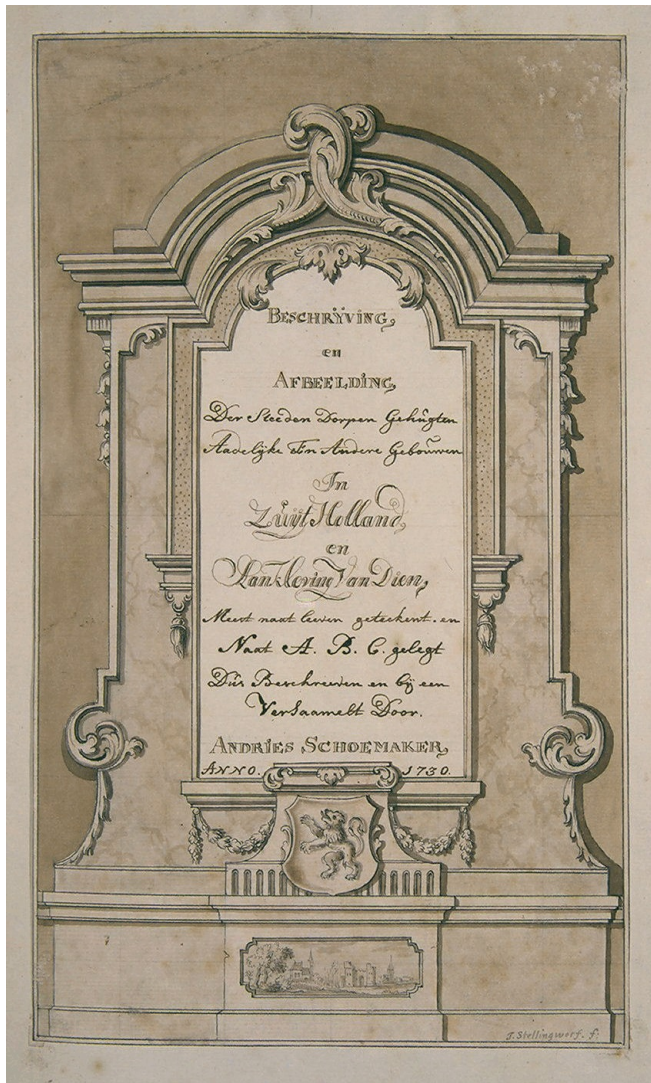 BESCHRŸVING,
en
AFBEELDING,
Der Steeden Dorpen Gehugten
Aadelijke En Andere Gebouwen
In
Zuijt Holland,
en
Aankleving Van Dien,
Meest naat leeven geteekent. en
Naat A. B. C. gelegt
Dus Beschreeven en bij een
Versaamelt Door.
ANDRIES SCHOEMAKER,
ANNO. 1730.
J. Stellingwerf. f.